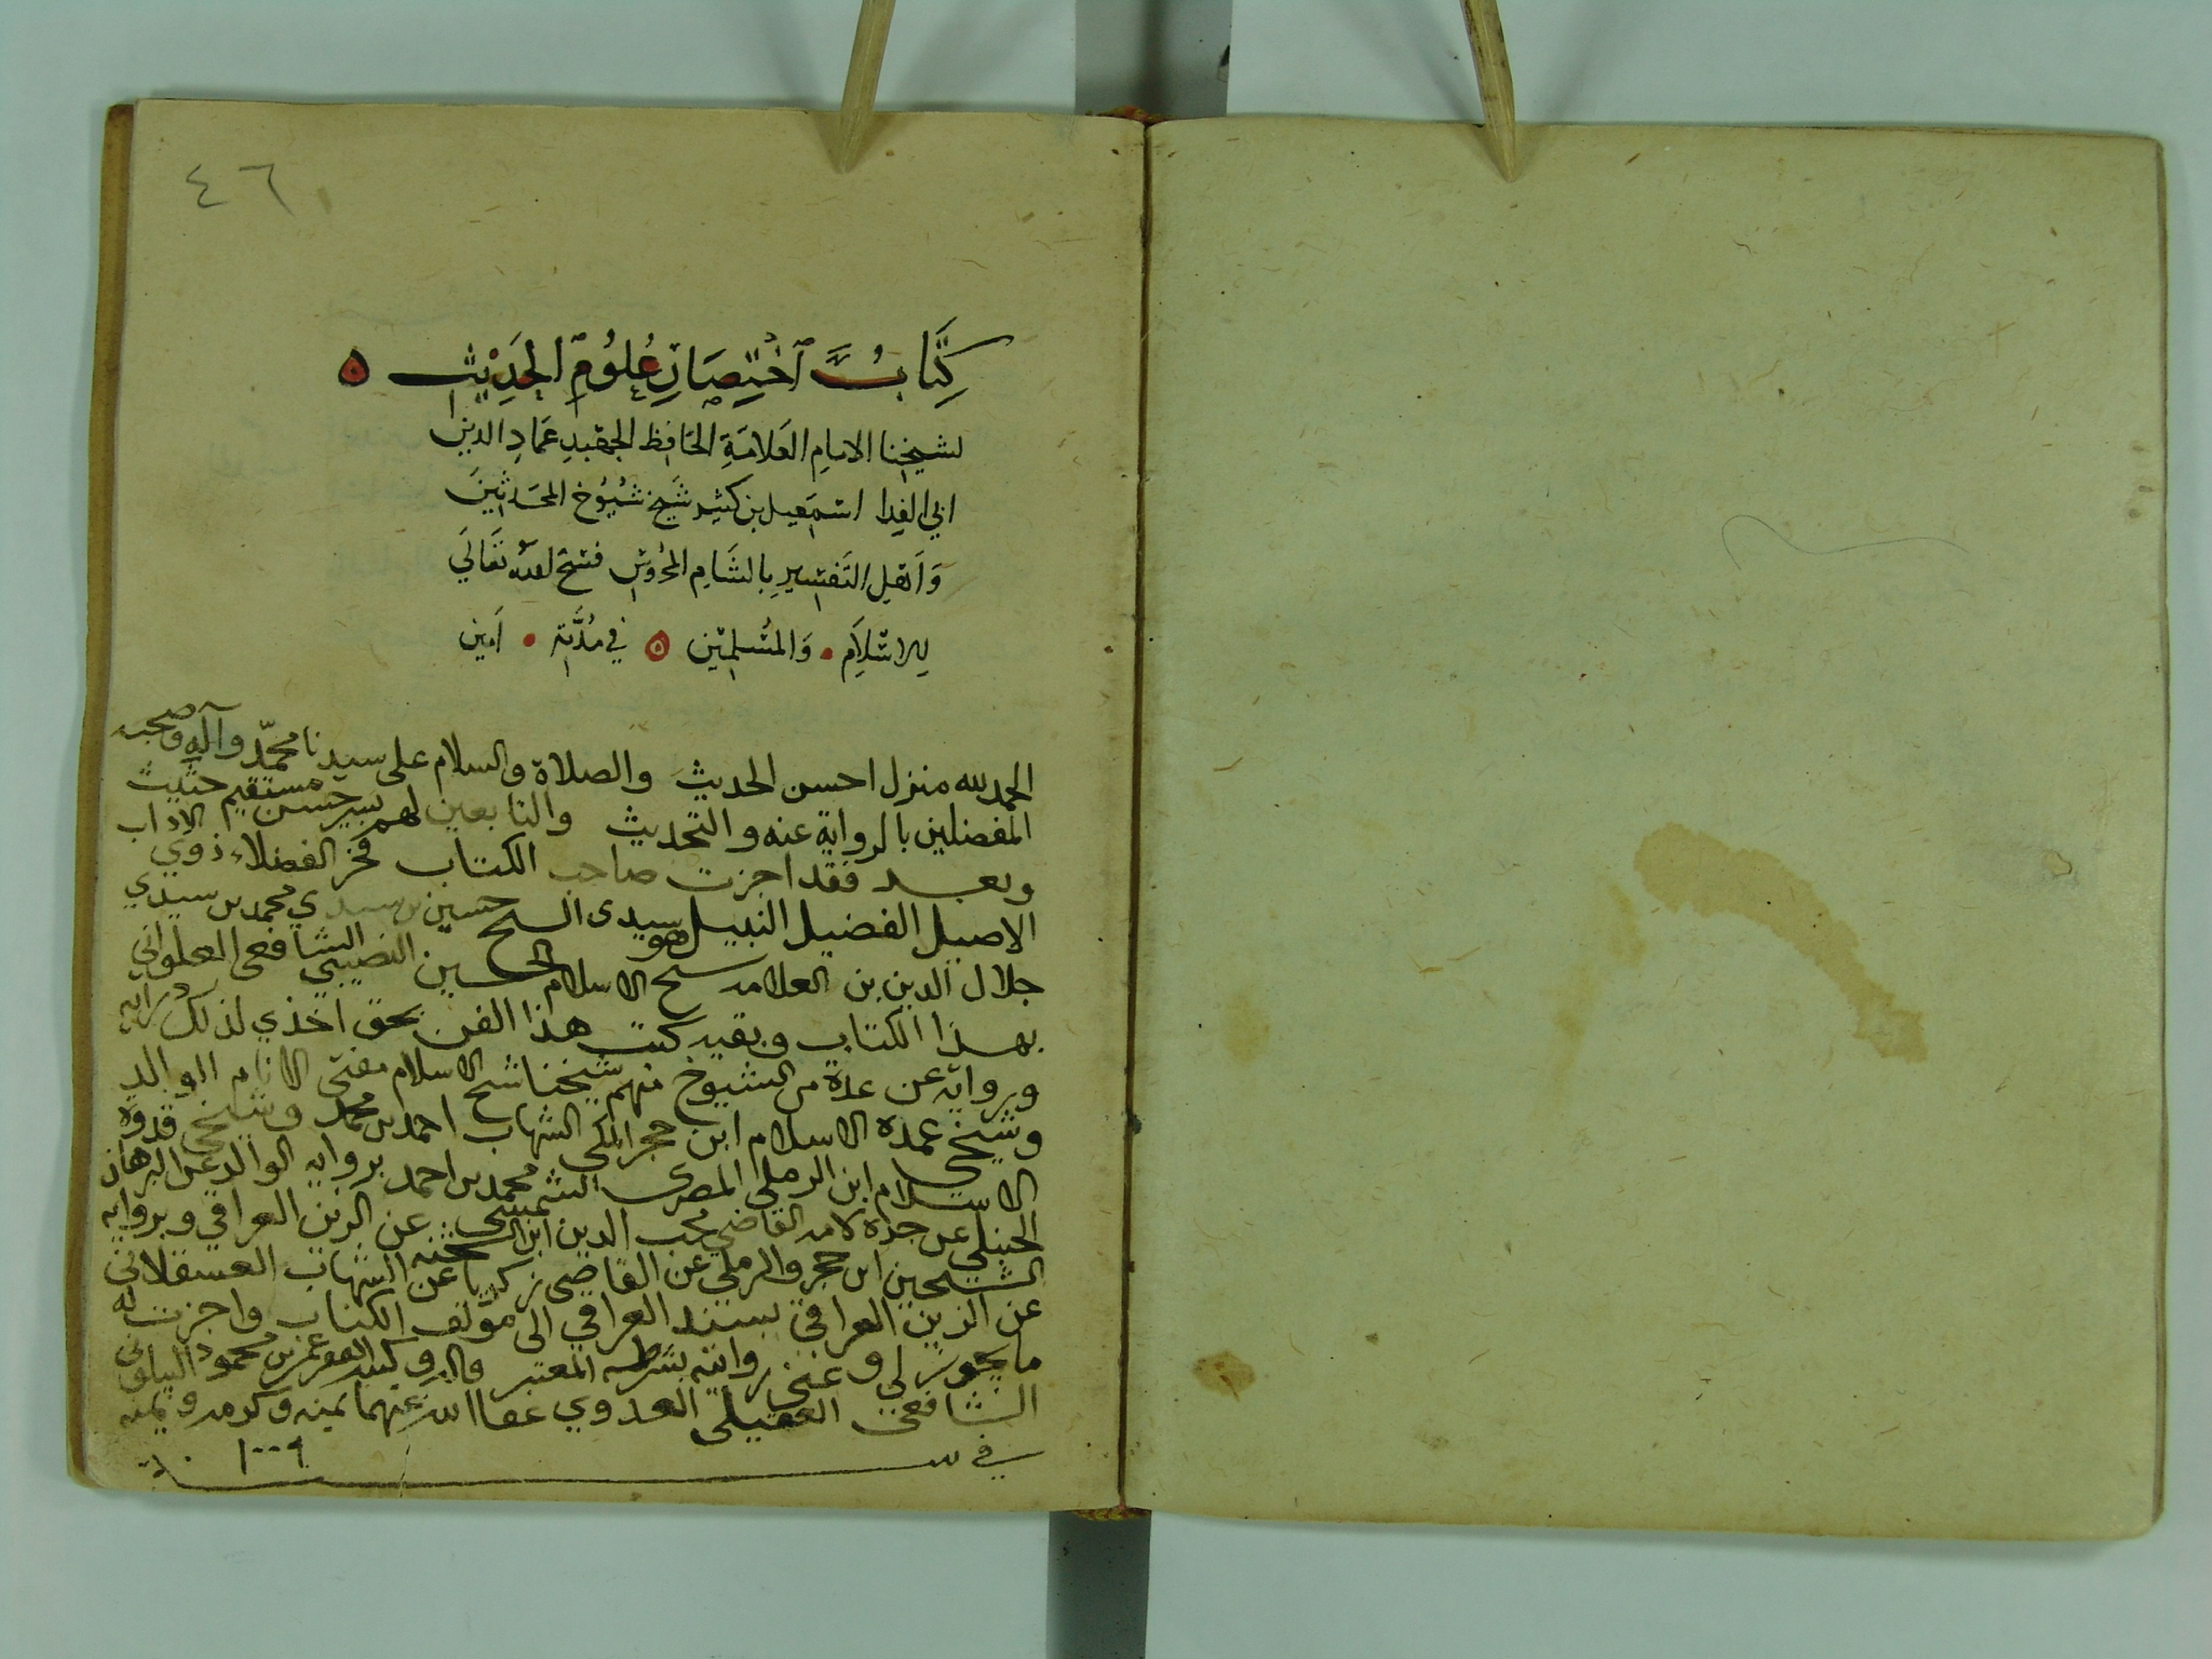 ٤٦
كِتَابُ اخْتِصَارِ عُلُومِ الحَدِيْثِ
لشيخنا الامامِ العَلامَةِ الحَافِظِ الجهبدِ عمَادِ الدين
ابي الفِدا اسمَعيل بن كثير شيَخ شُيُوُخ المحَدثينَ
وَاَهلِ التَفسيرِ بالشَامِ المحُروسِ فسَح اللهُ تعَالَي
لِلاسْلاَمِ وَالمسُلمِين في مُدَّتِه اَمين
الحمد لله منزل احسن الحديث والصلاة والسلام على سيدنا محمّد وآله وصحبه
المفضلين بالرواية عنه والتحديث والتابعين لهم بسير حسن مستقيم حثيث
وبعد فقد اجزت صاحب الكتاب فخر الفضلاء ذوي الاداب
الاصيل الفضيل النبيل هو سيدى الشيخ حسين بن سيدي محمد بن سيدي
جلال الدين بن العلامه شيخ الاسلام الحسين النصيبي الشافعى
بهذا الكتاب وبقيه كتب هذا الفن بحق اخذي لذلك درايه
وروايه عن عدة من الشيوخ منهم شيخنا شيخ الاسلام مفتى الانام الوالد
وشيخي عمدة الاسلام ابن حجر المكى الشهاب احمد بن محمد وشيخي قدوة
الاسلام ابن الرملي المصرى الشمس محمد بن احمد بروايه الوالد عن البرهان
الحنبلي عن جده لامه القاضي محب الدين ابن الشحنه عن الزين العراقي وبروايه
الشيخين ابن حجر والرملي عن القاضى زكريا عن الشهاب العسقلاني
عن الزين العراقي بسند العراقي الى مؤلف الكتاب واجزت له
ما يجوز لي وعني روايته بشرطه المعتبر قاله وكتبه عمر بن محمود البيلوني
الشافعى العقيلى العدوي عفا الله عنهما بمنه وكرمه ويمنه
في سنة ١٠٠٩